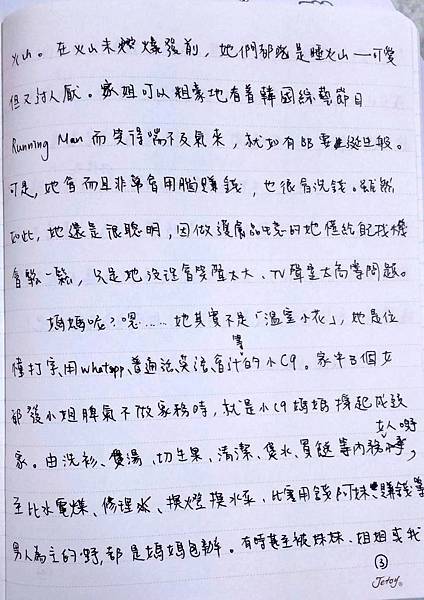 火山。在火山未爆發前，她們都只是啞火山——可愛
但又討人厭。家姐可以粗豪地看着韓國綜藝節目
Running Man 而笑得喘不及氣來，就如有BB要誕生般。
可是，她會而且非常會用腦賺錢，也很會洗錢。雖然
如此，她還是很聰明，因做護膚品的她懂給自己找機
會鬆一鬆，只是她沒理會笑聲太大、TV聲量太高等問題。
媽媽呢？嗯……她其實不是「溫室小花」，她是位
懂打字、用whatsapp、普通話、英語、會計等的小C9。家中3個女
都發小姐脾氣不做家務時，就是小C9媽媽撐起成頭
家。由洗衫、煲湯、切生果、清潔、煲水、買餸等內務女人嘢，
至比水電煤、修理、換燈換水、比家用錢阿妹、賺錢等
男人為主的嘢，都是媽媽包辦。有時甚至被妹妹、姐姐或我
3
Jetoy